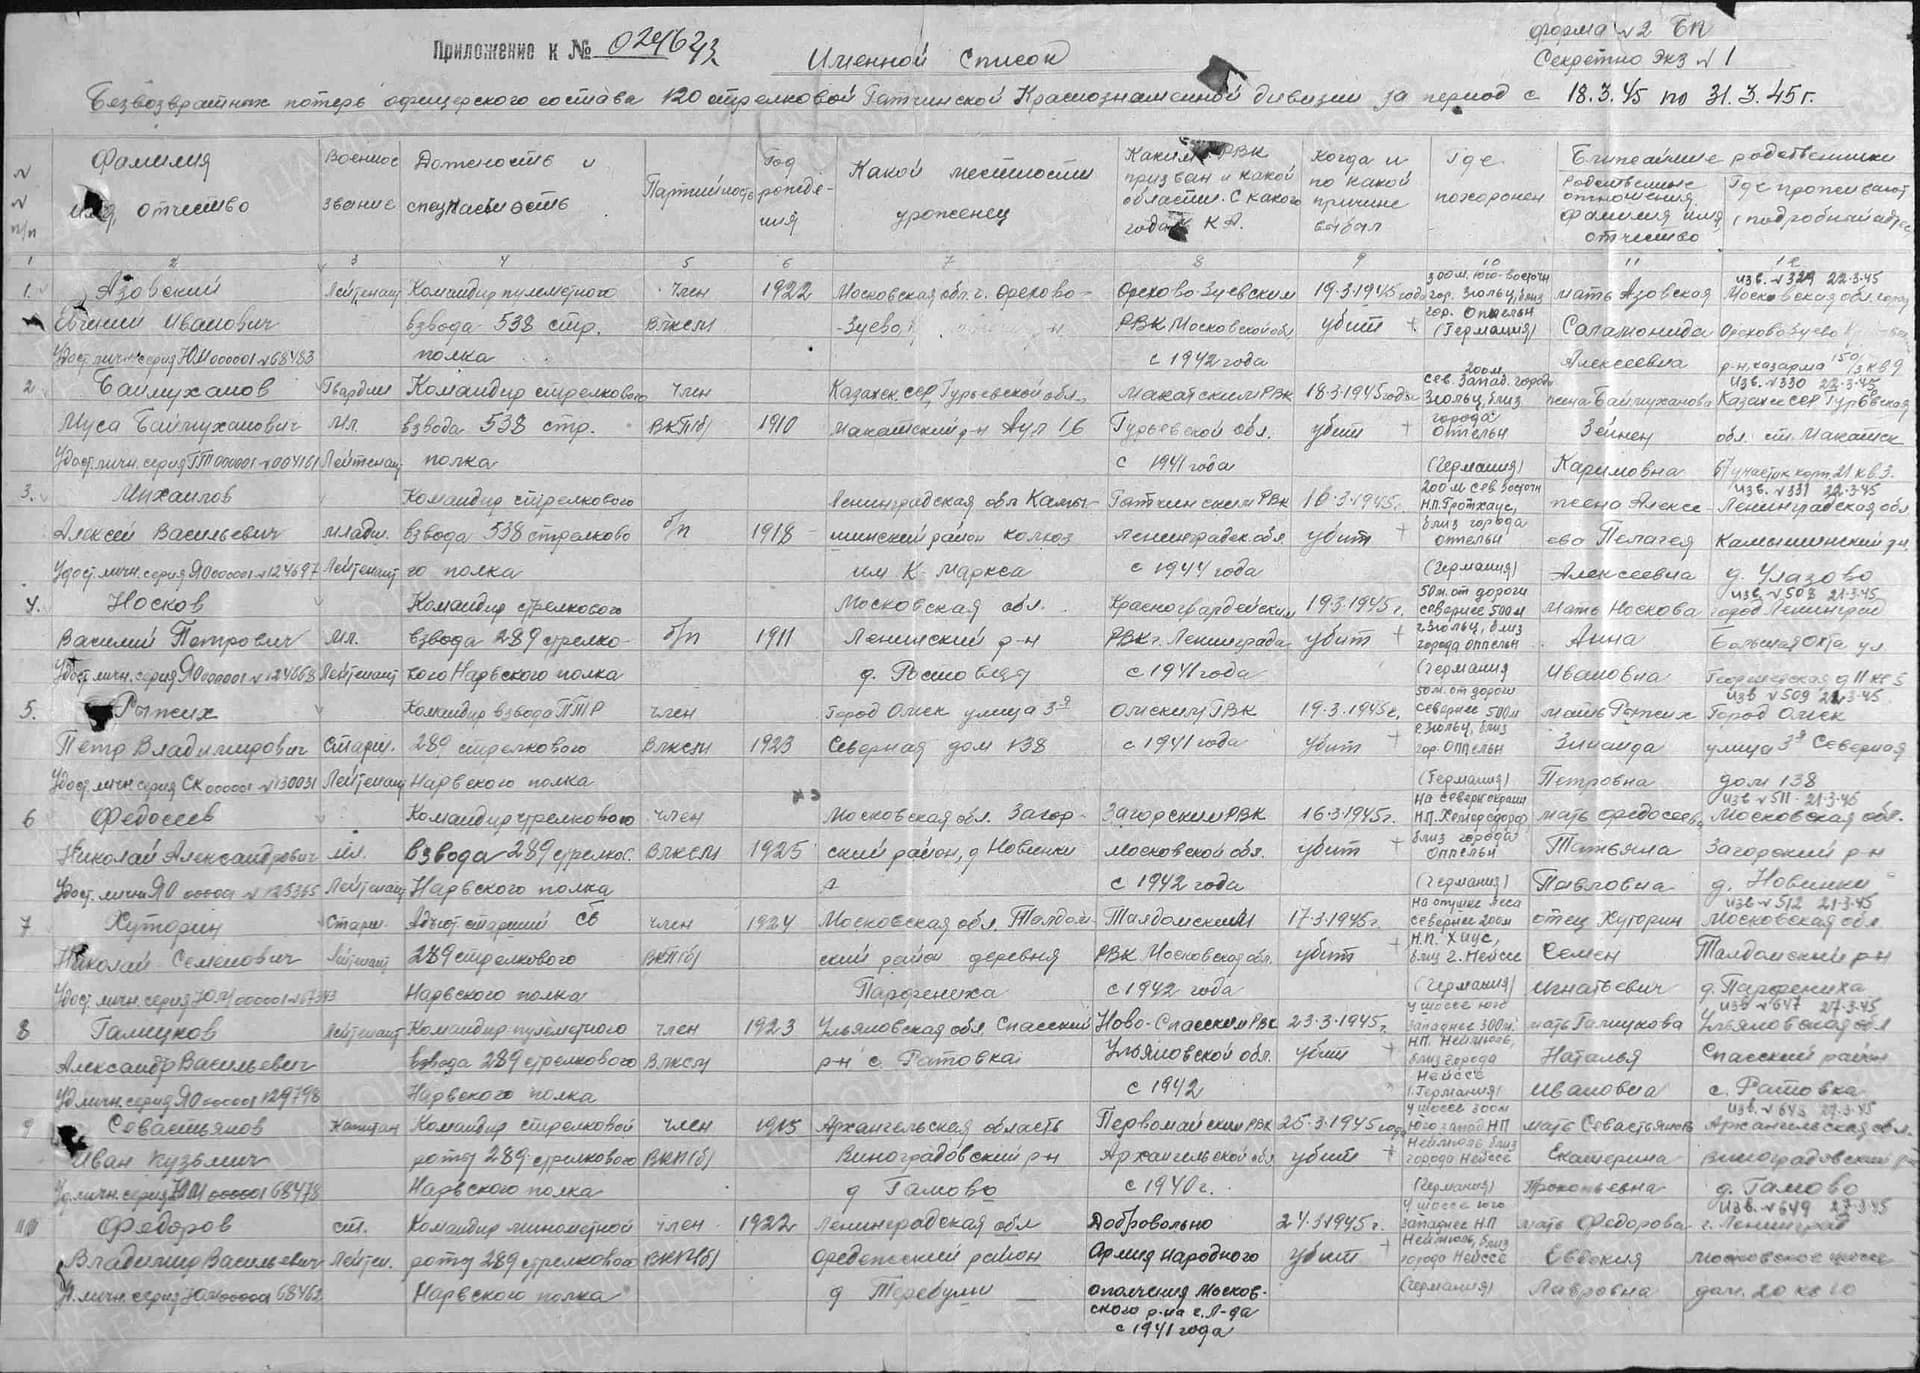 Приложение к №
Именной Список
форма №2 БП
Секретно Экз №1
Безвозвратных потерь офицерского состава 120 стрелковой Гатчинской Краснознаменной дивизии за период с 18.3.45 по 31.3.45г.
№ № п/п
Фамилия отчество
Военное звание
Должность и специальность
Партийность
Год рождения
Какой местности уроженец
Каким РВК призван и какой области. С какого года в К.А.
Когда и по какой причине выбыл
Где похоронен
Ближайшие родственники
Родственные отношения фамилия имя отчество
Где проживают (подробный адрес
1 2 3 4 5 6 7 8 9 10 11 12
1. Азовский Лейтенант Командир пулеметного член 1922 Московская обл. г. Орехово- Орехово-Зуевским 19.3.1945 года 300м. юго-восточн гор. Згольц, близ мать Азовская изв. №329 22.3.45 Московская обл. город
Евгений Иванович взвода 538 стр. ВЛКСМ Зуево РВК Московской обл. убит гор. Оппельн (Германия) Саламонида Орехово Зуево
Удост. личн. серия ЮМ 000001 №68483 полка с 1942 года Алексеевна р-н. казарма кв 9
2 Баймуханов Гвардии Командир стрелкового член Казахск. ССР, Гурьевской обл. Макатским РВК 18.3.1945 года 200м. сев. запад. город Згольц, близ жена Баймуханова изв. №330 22.3.45 Казахск ССР Гурьевская
Муса Баймуханович Мл. взвода 538 стр. ВКП(б) 1910 Макатский р-н Аул 16 Гурьевской обл. убит города Оппельн Зейнен обл. ст. Макатск
Удост. личн. серия ГТ 000001 №004161 Лейтенант полка с 1941 года (Германия) Каримовна участок корп. 21 кв 3.
3. Михайлов Командир стрелкового Ленинградская обл Камы- Гатчинским РВК 16.3.1945г. 200м сев. восточн Н.П. Гротхаус, жена Алексе изв. №331 22.3.45 Ленинградская обл.
Алексей Васильевич младш. взвода 538 стрелково б/п 1918 шинский район колхоз Ленинградск. обл. убит близ города Оппельн ева Пелагея Камышинский р-н.
Удост. личн. серия ЯО 000001 №124697 Лейтенант го полка им К. Маркса с 1944 года (Германия) Алексеевна д. Глазово
4. Носков Командир стрелкового Московская обл. Красногвардейским 19.3.1945г. 50м. от дороги севернее 500м мать Носкова изв. №508 21.3.45 город Ленинград
Василий Петрович Мл. взвода 289 стрелко- б/п 1911 Ленинский р-н РВК г. Ленинграда убит г. Згольц, близ города Оппельн Анна Большая Охта ул.
Удост. личн. серия ЯО 000001 №124668 Лейтенант кого Нарвского полка с 1941 года (Германия Ивановна Георгиевская д 11 кв 5
5. Рыжих Командир взвода ПТР член Город Омск улица 3я Омским ГВК 19.3.1945г. 50м. от дороги севернее 500м мать Рыжих изв №509 21.3.45 Город Омск
Петр Владимирович Старш. 289 стрелкового ВЛКСМ 1923 Северная дом 138 с 1941 года убит г. Згольц, близ гор. Оппельн Зинаида улица 3я Северная
Удост. личн серия СК 000001 №130031 Лейтенант Нарвского полка (Германия) Петровна дом 138
6 Федосеев Командир стрелкового член Московская обл. Загор- Загорским РВК 16.3.1945г. на северн окраин мать Федосеева изв. №511 21.3.45 Московская обл.
Николай Александрович Мл. взвода 289 стрелков. ВЛКСМ 1925 ский район, д Новинки Московской обл. убит близ города Оппельн Татьяна Загорский р-н
Удост. личн ЯО 000001 №125365 Лейтенант Нарвского полка с 1942 года (Германия) Павловна д. Новинки
7 Хуторин Старш. Адъют. старший Сб член 1924 Московская обл. Талдом- Талдомский 17.3.1945г. на опушке леса севернее 200м отец Хуторин изв №512 21.3.45 Московская обл
Николай Семенович Лейтенант 289 стрелкового ВКП(б) ский район деревня РВК Московской обл. убит Н.П. Хаус, близ г. Нейсе Семен Талдомский р-н
Удост. личн. серия ЮМ 000001 Нарвского полка Парфениха с 1942 года (Германия) Игнатьевич д. Парфениха
8 Галиуков Лейтенант Командир пулеметного член 1923 Ульяновская обл. Спасский Ново-Спасским РВК 23.3.1945г. у шоссе юго западнее 300м. мать Галиукова изв №647 27.3.45 Ульяновская обл
Александр Васильевич взвода 289 стрелкового ВЛКСМ р-н с. Ратовка Ульяновской обл. убит Н.П. Неймюль, близ города Нейссе Наталья Спасский район
Уд. личн. серия ЯО 000001 129798 Нарвского полка с 1942 (Германия) Ивановна с. Ратовка
9 Севастьянов Капитан Командир стрелковой член 1915 Архангельская область Первомайским РВК 25.3.1945 года у шоссе 300м юго запад НП мать Севастьянова изв. №648 27.3.45 Архангельская обл.
Иван Кузьмич роты 289 стрелкового ВКП(б) Виноградовский р-н Архангельской обл убит Неймюль, близ города Нейссе Екатерина Виноградовский р-н
Уд. личн. серия ЮМ 000001 68478 Нарвского полка д Гамово с 1940г. (Германия) Прокопьевна д. Гамово
10 Федоров ст. Командир минометной член 1922 Ленинградская обл Добровольно 24.3.1945г. у шоссе юго западнее Н.П мать Федорова изв. №649 27.3.45 г. Ленинград
Владимир Васильевич Лейтен. роты 289 стрелкового ВКП(б) Оредежский район Армия Народного убит Неймюль, близ города Нейссе Евдокия Московское шоссе
Уд. личн. серия ЮМ 000001 Нарвского полка д Теребуши ополчения Москов- (Германия) Лавровна дом. 20 кв 10
ского р-на г. Л-да
с 1941 года